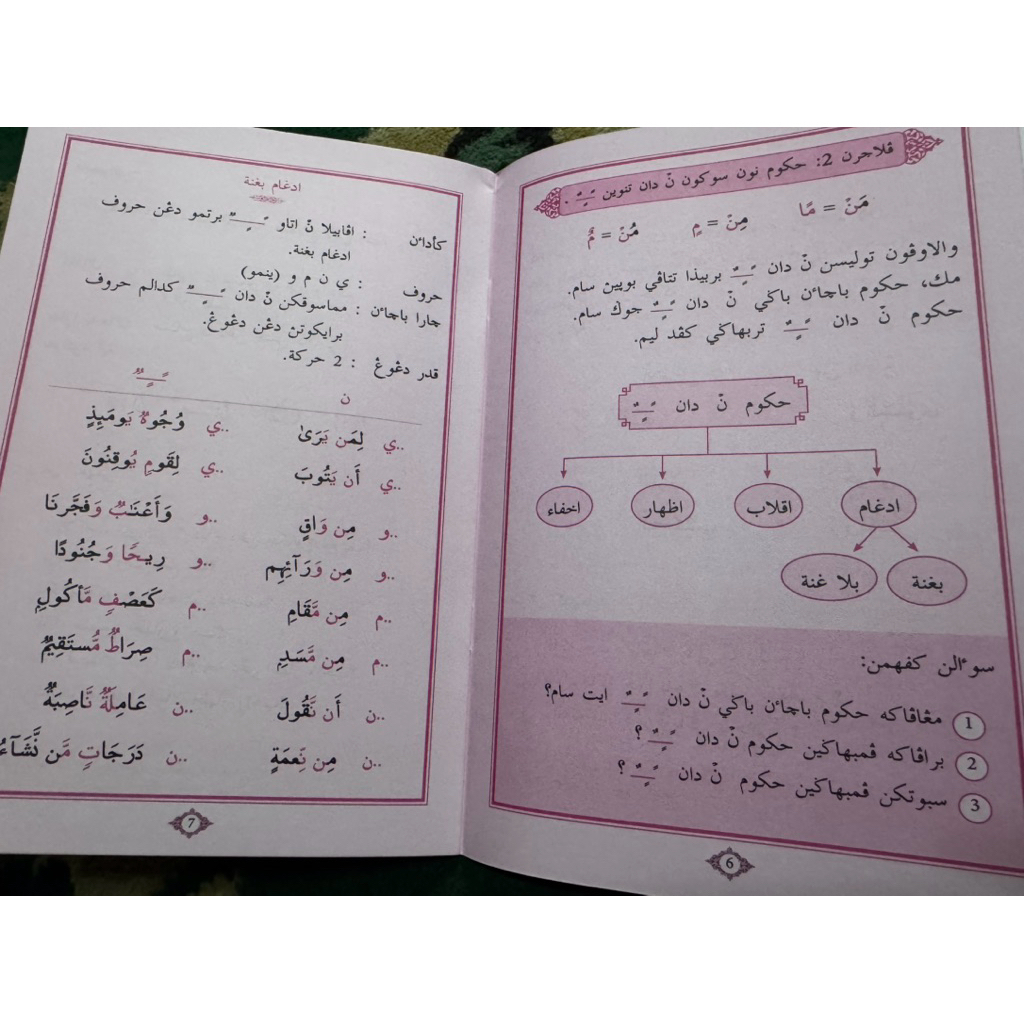 ڤلاجرن 2: حكوم نون سوكون نْ دان تنوين ـًـٍـٌ .
مَنْ = مًا مِنْ = مٍ مُنْ = مٌ
والاوڤون توليسن نْ دان ـًـٍـٌ بربيذا تتاڤي بوڽين سام.
مك، حكوم باچاءن باݢي نْ دان ـًـٍـٌ جوݢ سام.
حكوم نْ دان ـًـٍـٌ تربهاݢي كڤد ليم.
حكوم نْ دان ـًـٍـٌ
ادغام
اقلاب
اظهار
اخفاء
بغنة
بلا غنة
سوءالن كفهمن:
1 مڠاڤاكه حكوم باچاءن باݢي نْ دان ـًـٍـٌ ايت سام؟
2 براڤاكه ڤمبهاݢين حكوم نْ دان ـًـٍـٌ ؟
3 سبوتكن ڤمبهاݢين حكوم نْ دان ـًـٍـٌ ؟
6
ادغام بغنة
كأداءن : اڤابيلا نْ اتاو ـًـٍـٌ برتمو دڠن حروف
ادغام بغنة.
حروف : ي ن م و (ينمو)
چارا باچاءن : مماسوقكن نْ دان ـًـٍـٌ كدالم حروف
برايكوتن دڠن دڠوڠ.
قدر دڠوڠ : 2 حركة.
ن ـًـٍـٌ
..ي لِمَن يَرَىٰ ..ي وُجُوهٌ يَومَئِذٍ
..ي أَن يَتُوبَ ..ي لِقَومٍ يُوقِنُونَ
..و مِن وَاقٍ ..و وَأَعْنَـٰبٌ وَفَجَّرنَا
..و مِن وَرَآئِهِم ..و رِيحًا وَجُنُودًا
..م مِن مَّقَامِ ..م كَعَصْفٍ مَّأكُولِۭ
..م مِن مَّسَدِۭ ..م صِرَاطٌ مُّستَقِيمٌ
..ن أَن نَّقُولَ ..ن عَامِلَةٌ نَّاصِبَةٌ
..ن مِن نِعمَةٍ ..ن دَرَجَاتٍ مَّن نَّشَآءُ
7